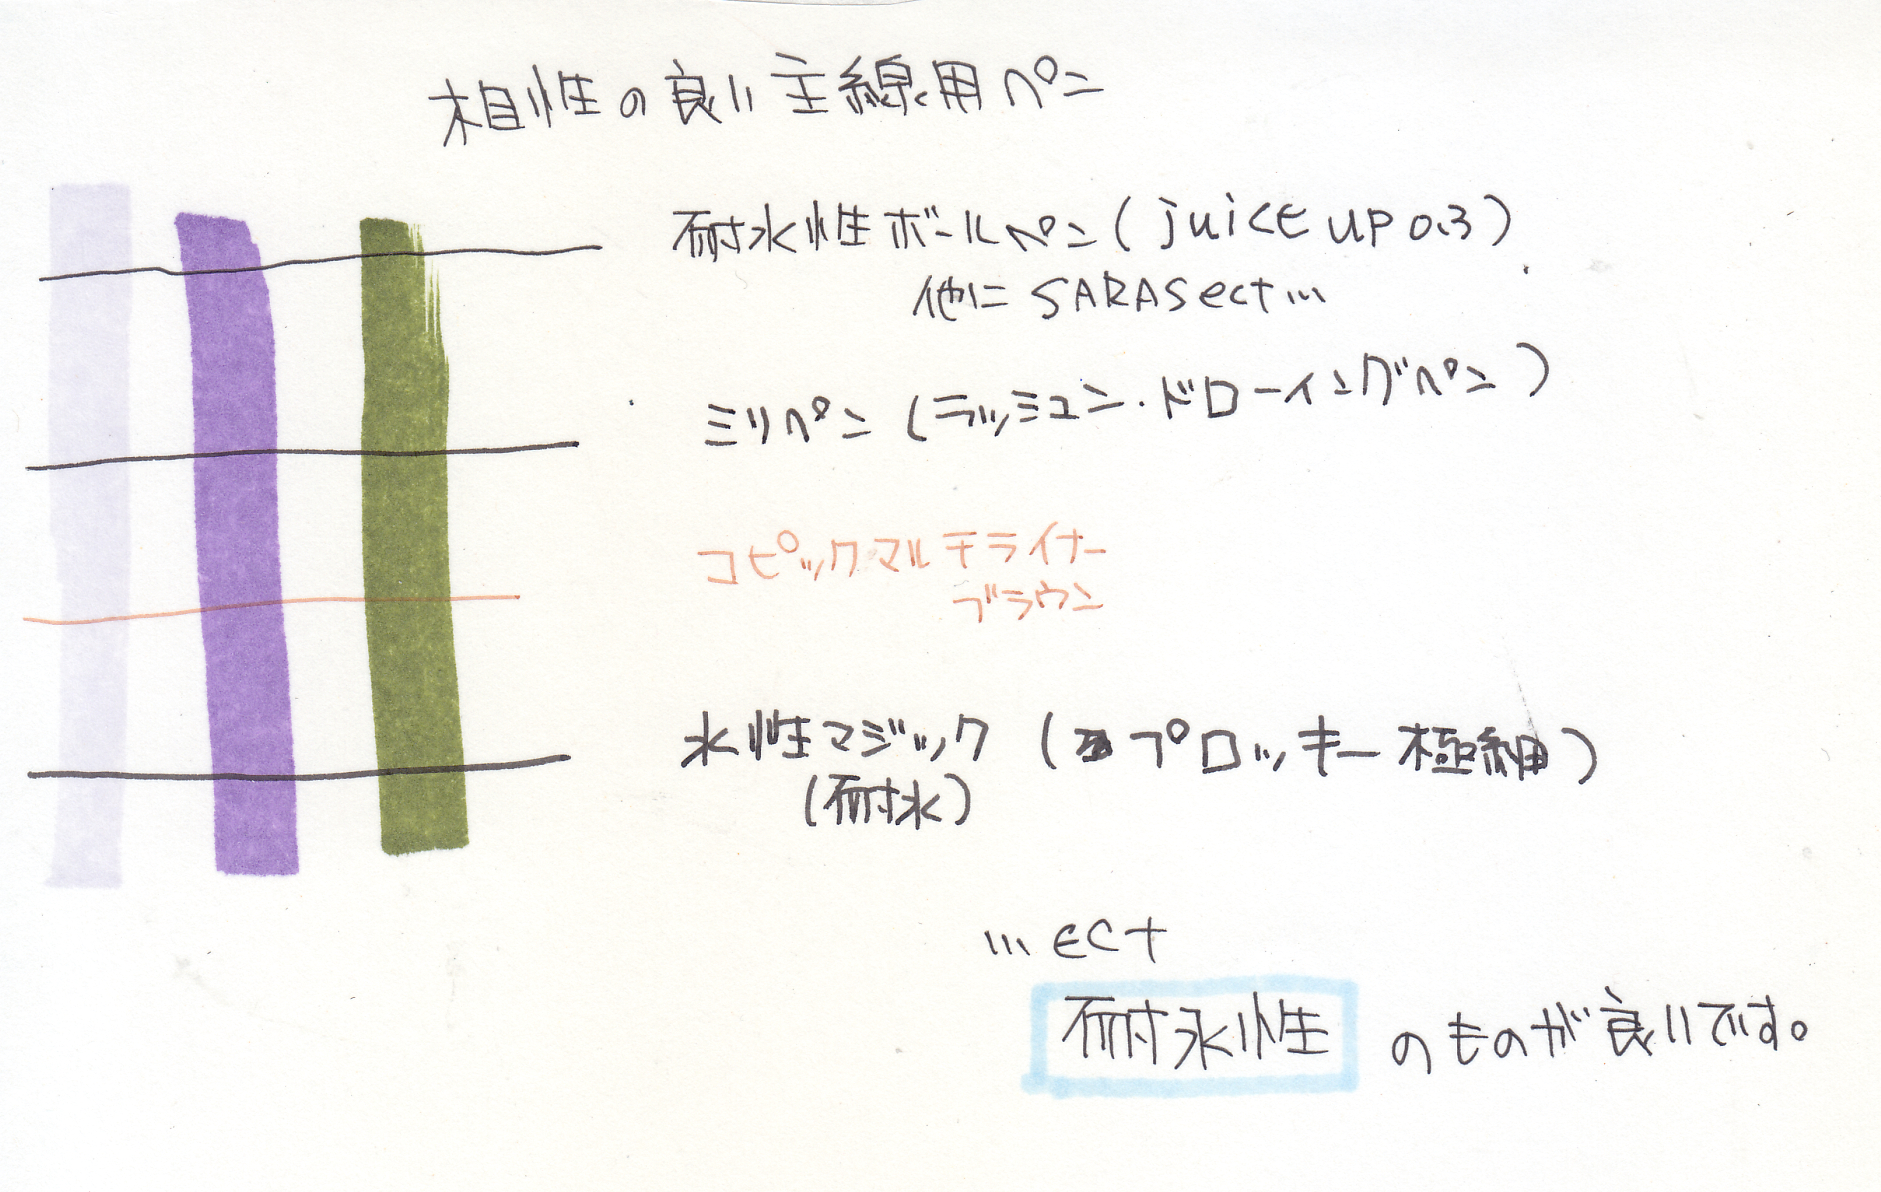 相性の良い主線用ペン
耐水性ボールペン(juice up 0.3)
他に SARASect…
ミリペン(ラッション・ドローイングペン)
コピックマルチライナー
ブラウン
水性マジック(プロッキー極細)
(耐水)
…ect
耐水性のものが良いです。